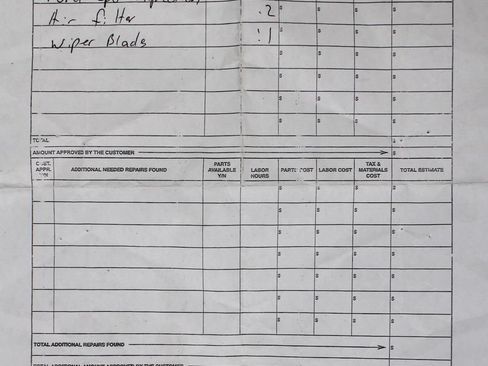 Air filter .2 $ $ $ $
Wiper Blads .1 $ $ $ $
$ $ $ $
$ $ $ $
$ $ $ $
$ $ $ $
TOTAL $
AMOUNT APPROVED BY THE CUSTOMER $
CUST. APPR. Y/N ADDITIONAL NEEDED REPAIRS FOUND PARTS AVAILABLE Y/N LABOR HOURS PARTS COST LABOR COST TAX & MATERIALS COST TOTAL ESTIMATE
$ $ $ $
$ $ $ $
$ $ $ $
$ $ $ $
$ $ $ $
$ $ $ $
$ $ $ $
TOTAL ADDITIONAL REPAIRS FOUND $
TOTAL ADDITIONAL AMOUNT APPROVED BY THE CUSTOMER